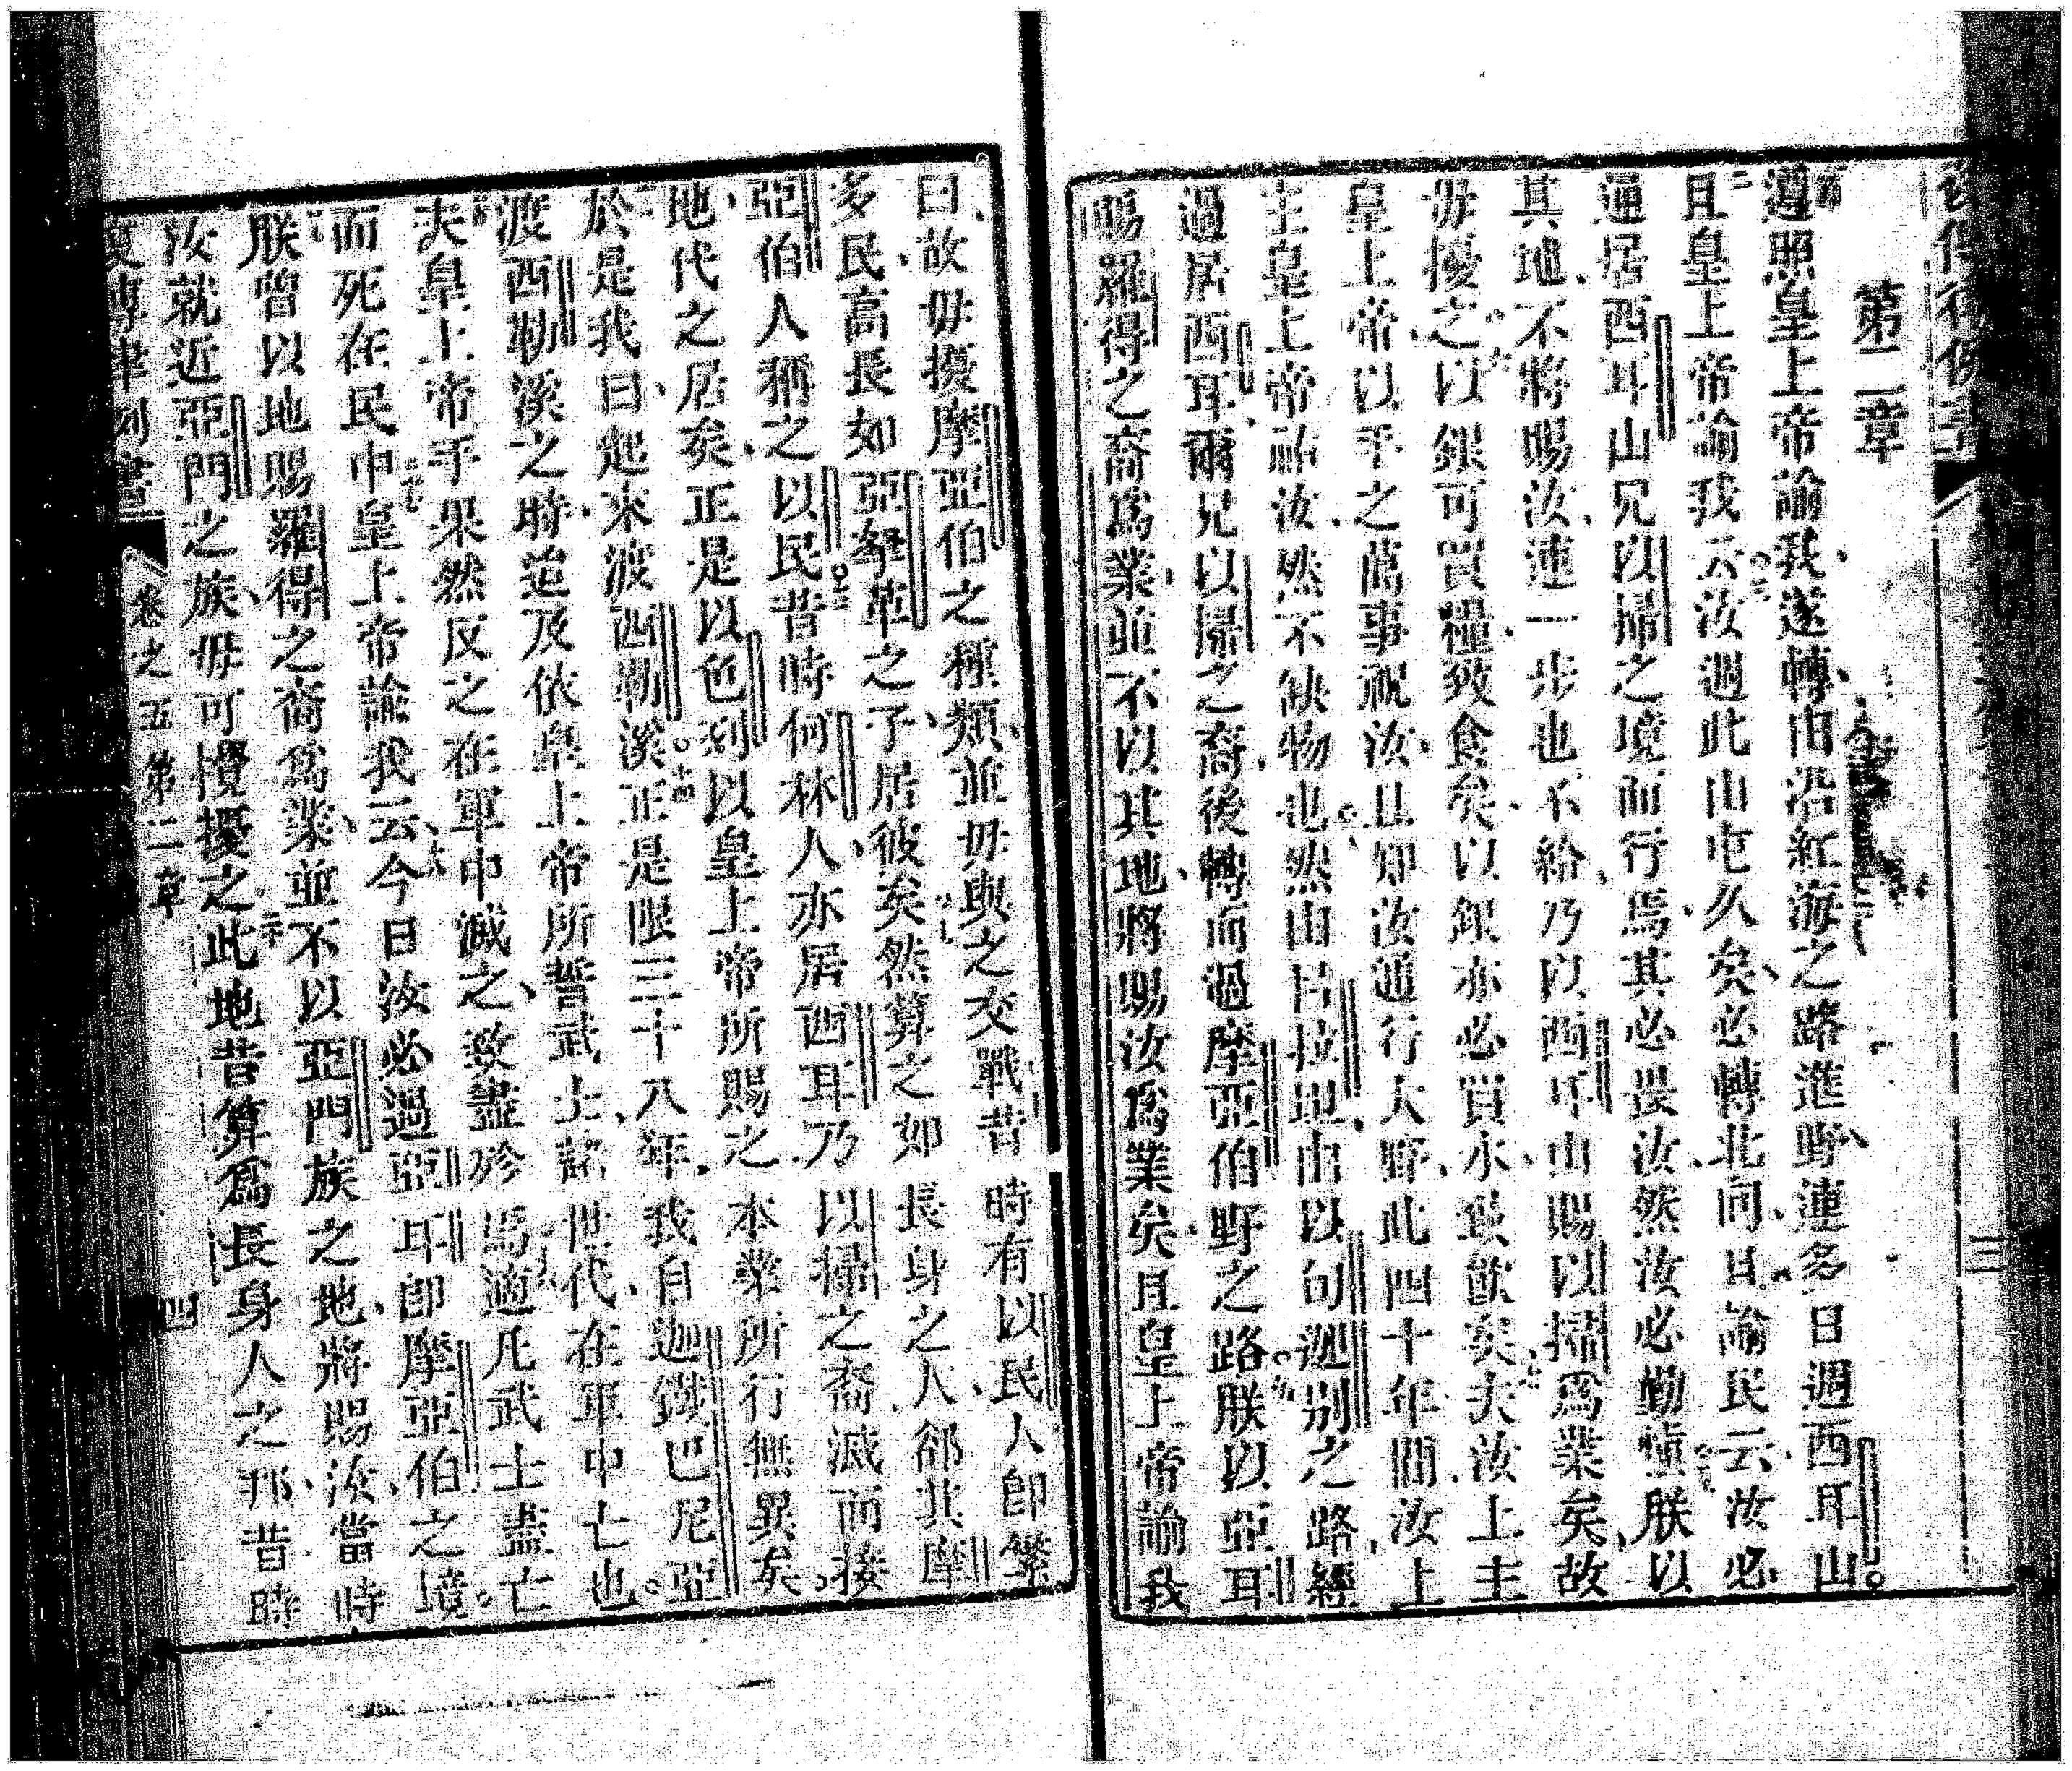 第二章
遵照皇上帝諭我遂轉由沿紅海之路進野連多日週西耳山
且皇上帝諭我云汝週此山屯久矣必轉北向且諭民云汝必
通居西耳山兄以掃之境而行焉其必畏汝然汝必勤慎朕以
其地不將賜汝連一步也不給乃以西耳山賜以掃為業矣故
毋擾之以銀可買糧致食矣以銀亦必買水致飲矣夫汝上主
皇上帝以手之萬事祝汝且知汝通行大野此四十年間汝上
主皇上帝祐汝然不缺物也然由拉坦由以旬迦別之路經
過居西耳爾兄以掃之裔後轉而過摩亞伯野之路朕以亞耳
賜羅得之裔為業並不以其地將賜汝為業矣且皇上帝諭我
曰故毋擾摩亞伯之種類並毋與之交戰昔時有以民人卽繁
多民高長如亞拏革之子居彼矣然算之如長身之人卻此摩
亞伯人稱之以民昔時何林人亦居西耳乃以掃之裔滅而接
地代之居矣正是以色列以皇上帝所賜之本業所行無異矣
於是我曰起來渡西勒溪正是限三十八年我自迦鐵巴尼亞
渡西勒溪之時迨及依皇上帝所誓武士諸世代在軍中亡也
夫皇上帝手果然反之在軍中滅之致盡殄焉適凡武士盡亡
而死在民中皇上帝諭我云今日汝必過亞耳卽摩亞伯之境
朕曾以地賜羅得之裔為業並不以亞門族之地將賜汝當時
汝就近亞門之族毋可攪擾之此地昔算為長身人之邦昔時
卷之五第二章
四
三